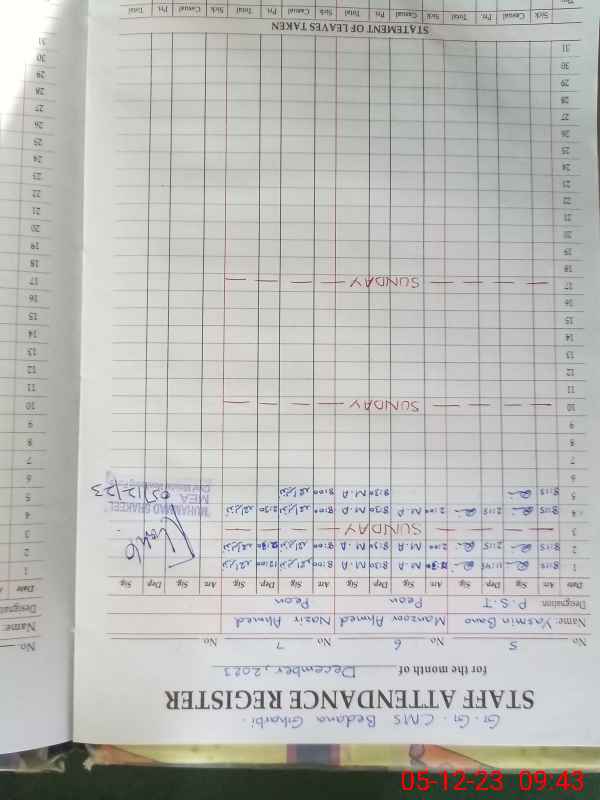 CMS Bedana Gharbi.
STAFF ATTENDANCE REGISTER
for the month of December, 2023
No. 5 No. 6 No. 7 No.
Name: Yasmin Bano Manzoor Ahmed Nazir Ahmed
Designation: P.S.T Peon Peon
Date Arr Sig Dep Sig Arr Sig Dep Sig Arr Sig Dep Sig Arr Sig Dep Sig
1 8:15 11:45 8:30 M.A M.A 8:00 نذیراحمد 12:00 نذیراحمد
2 8:15 2:15 8:30 M.A 2:00 M.A 8:00 نذیراحمد نذیراحمد
3 SUNDAY
4 8:15 2:15 8:30 M.A 2:00 M.A 8:00 نذیراحمد 2:30 نذیراحمد
5 8:15 8:30 M.A 8:00 نذیراحمد
MUHAMMAD SHAKEEL
MEA
05/12/23
6
7
8
9
10 SUNDAY
11
12
13
14
15
16
17 SUNDAY
18
19
20
21
22
23
24
25
26
27
28
29
30
31
STATEMENT OF LEAVES TAKEN
Sick Casual Pri Total Sick Casual Pri Total Sick Casual Pri Total Sick Casual Pri Total
No.
Name:
Designation
Date
1
2
3
4
5
6
7
8
9
10
11
12
13
14
15
16
17
18
19
20
21
22
23
24
25
26
27
28
29
30
31
05-12-23 09:43